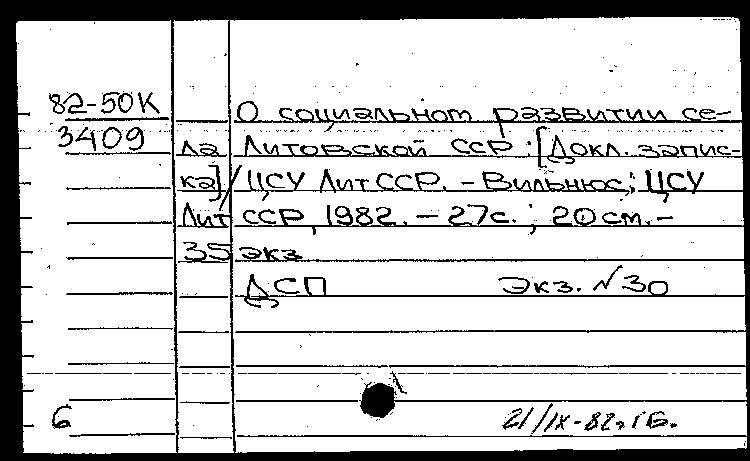 82-50К
3409
О социальном развитии се-
ла Литовской ССР : [Докл. запис-
ка] / ЦСУ ЛитССР. - Вильнюс : ЦСУ
Лит ССР, 1982. - 27с. ; 20 см. -
35 экз
ДСП Экз. № 30
6
21/IX-82г. ГБ.